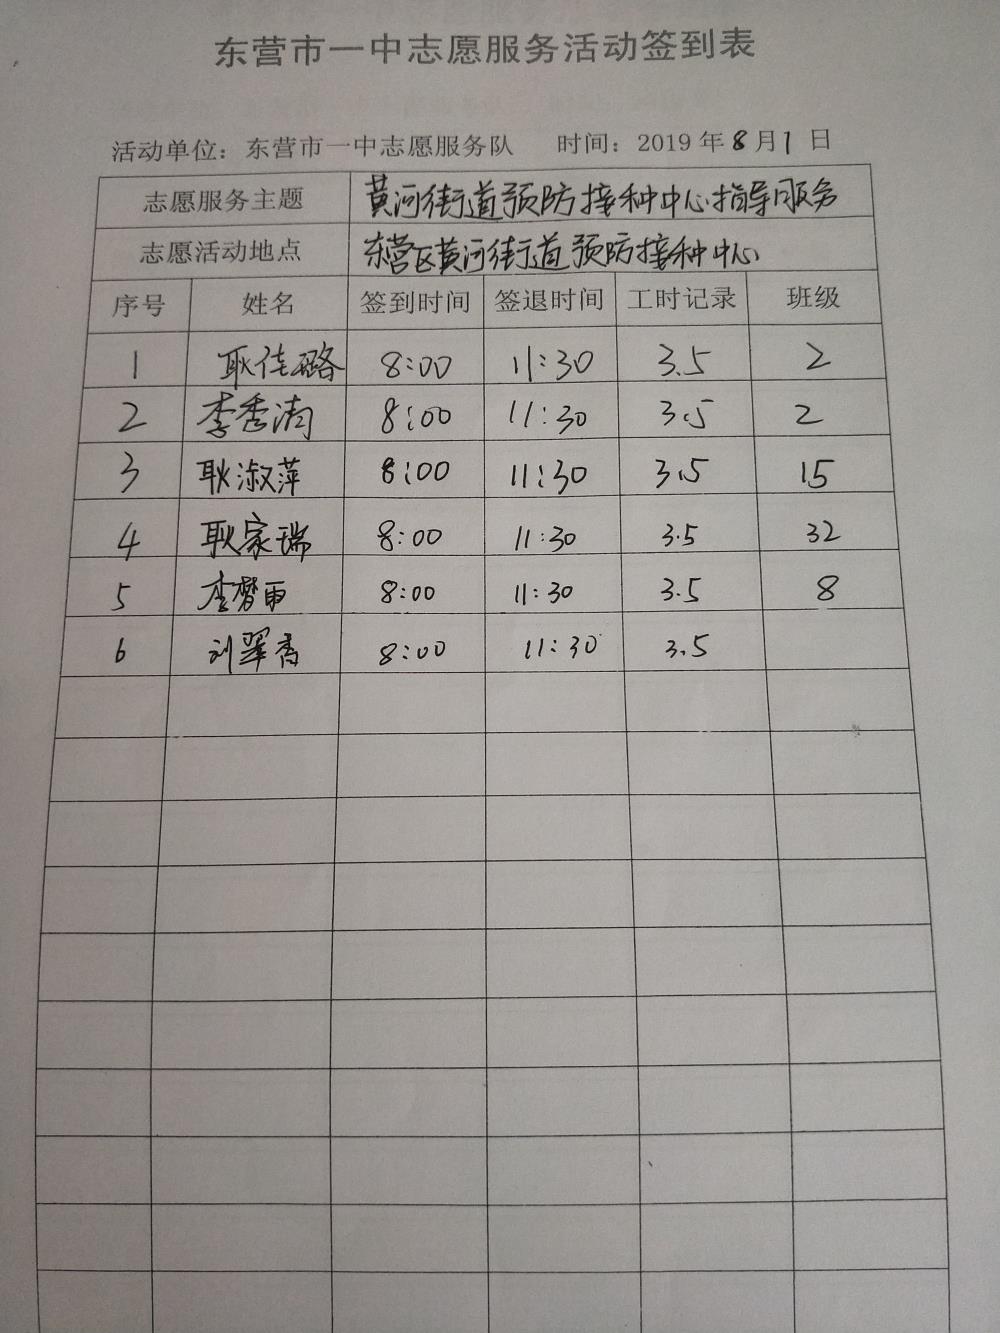 东营市一中志愿服务活动签到表
活动单位：东营市一中志愿服务队 时间：2019年8月1日
志愿服务主题 黄河街道预防接种中心指导服务
志愿活动地点 东营区黄河街道预防接种中心
序号 姓名 签到时间 签退时间 工时记录 班级
1 耿佳璐 8:00 11:30 3.5 2
2 李秀清 8:00 11:30 3.5 2
3 耿淑萍 8:00 11:30 3.5 15
4 耿家瑞 8:00 11:30 3.5 32
5 李梦雨 8:00 11:30 3.5 8
6 刘翠香 8:00 11:30 3.5